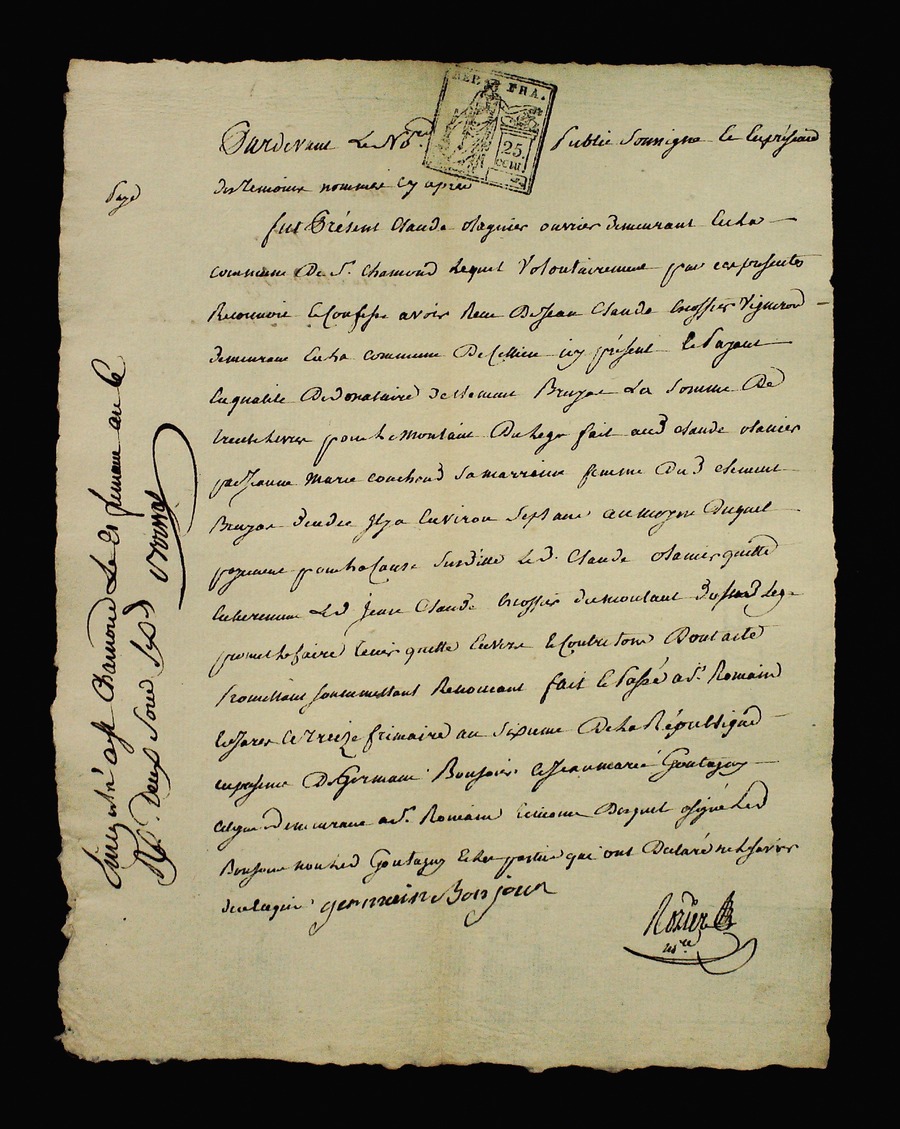 REP. FRA.
25.
CENT.
Pardevant Le No.re Public Soussigné Et En présence
des temoins nommés cy apres
payé
fut Présent Claude olagnier ouvrier demeurant En La
commune De St. Chamond Lequel Volontairement par ces presentes
Reconnoit & Confesse avoir Receu De Jean Claude Vigneron
demeurant En La commune De Cellieu icy présent & Payant
En qualité De donataire de Clement Bruyas La Somme De
trente Livres pour Le Montant Du Legs fait aud Claude olanier
par Jeanne Marie couchoud Sa marraine femme Dud Clement
Bruyas il y a Environ Sept ans au moyen Duquel
payement pour La Cause Susditte Le d. Claude olanier quitte
Led Jean Claude du montant dususd Legs
promet Le faire tenir quitte Envers & Contre tous Dont acte
Promettant soummettant Renoncant fait & Passé a St. Romain
Les Jarez Le treize frimaire an Sixieme De La République
En presence De Germain Bonjour & Jean marie Goutagny
demeurant a St. Romain temoins Desquel a signé Led
Bonjour non Led Goutagny & Les parties qui ont Declaré ne Le Savoir
de ce Enquis germain Bonjour
Rozier
No.re
Enregistré a St Chamond Le 21 frimaire an 6
R. Deux Sous Six d